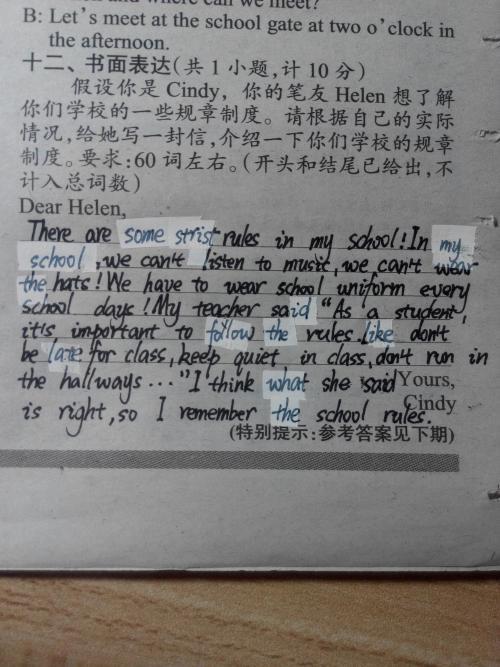 when and where can we meet?
B: Let's meet at the school gate at two o'clock in
the afternoon.
十二、书面表达(共1小题,计10分)
假设你是 Cindy, 你的笔友 Helen 想了解
你们学校的一些规章制度。请根据自己的实际
情况,给她写一封信,介绍一下你们学校的规章
制度。要求:60 词左右。(开头和结尾已给出,不
计入总词数)
Dear Helen,
There are some strist rules in my school! In my
school, we can't listen to music, we can't wear
the hats! We have to wear school uniform every
school days! My teacher said "As a student,
it's important to follow the rules like don't
be late for class, keep quiet in class, don't run in
the hallways ..." I think what she said Yours,
is right, so I remember the school rules. Cindy
(特别提示:参考答案见下期)